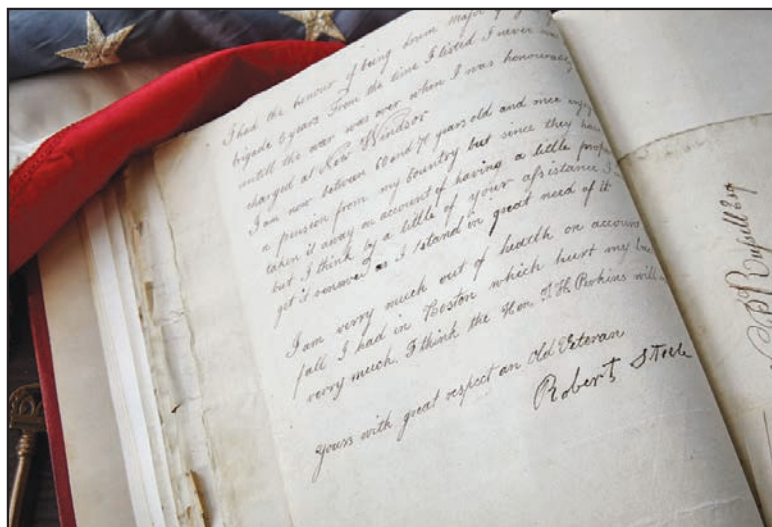 I had the honour of being drum major
brigade 8 years From the time I listed I never
untill the war was over when I was honourably
charged at New Windsor
I am now betwen 60 and 70 years old and once enjoy
a pension from my Country but since they have
taken it away on account of having a little prop
but I think by a little of your assistance I
get it renewed as I stand in great need of it
I am verry much out of health on account
fall I had in Boston which hurt my
verry much. I think the Hon. T. H. Perkins will
Yours with great respect an Old Veteran
Robert Steele
Russell Esq